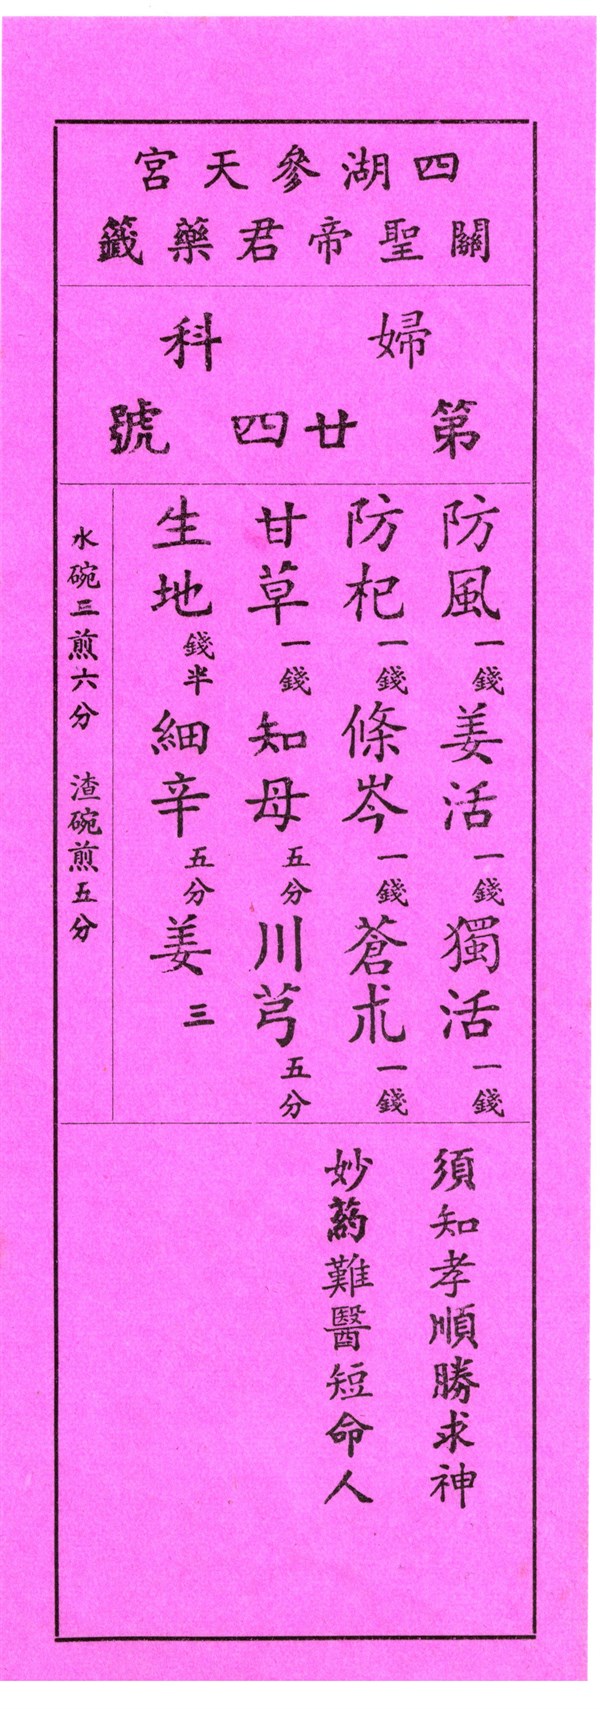 四湖參天宮
關聖帝君藥籤
婦科
第廿四號
防風一錢姜活一錢獨活一錢
防杞一錢條岑一錢蒼朮一錢
甘草一錢知母五分川芎五分
生地錢半細辛五分姜三
水碗三煎六分 渣碗煎五分
須知孝順勝求神
妙葯難醫短命人